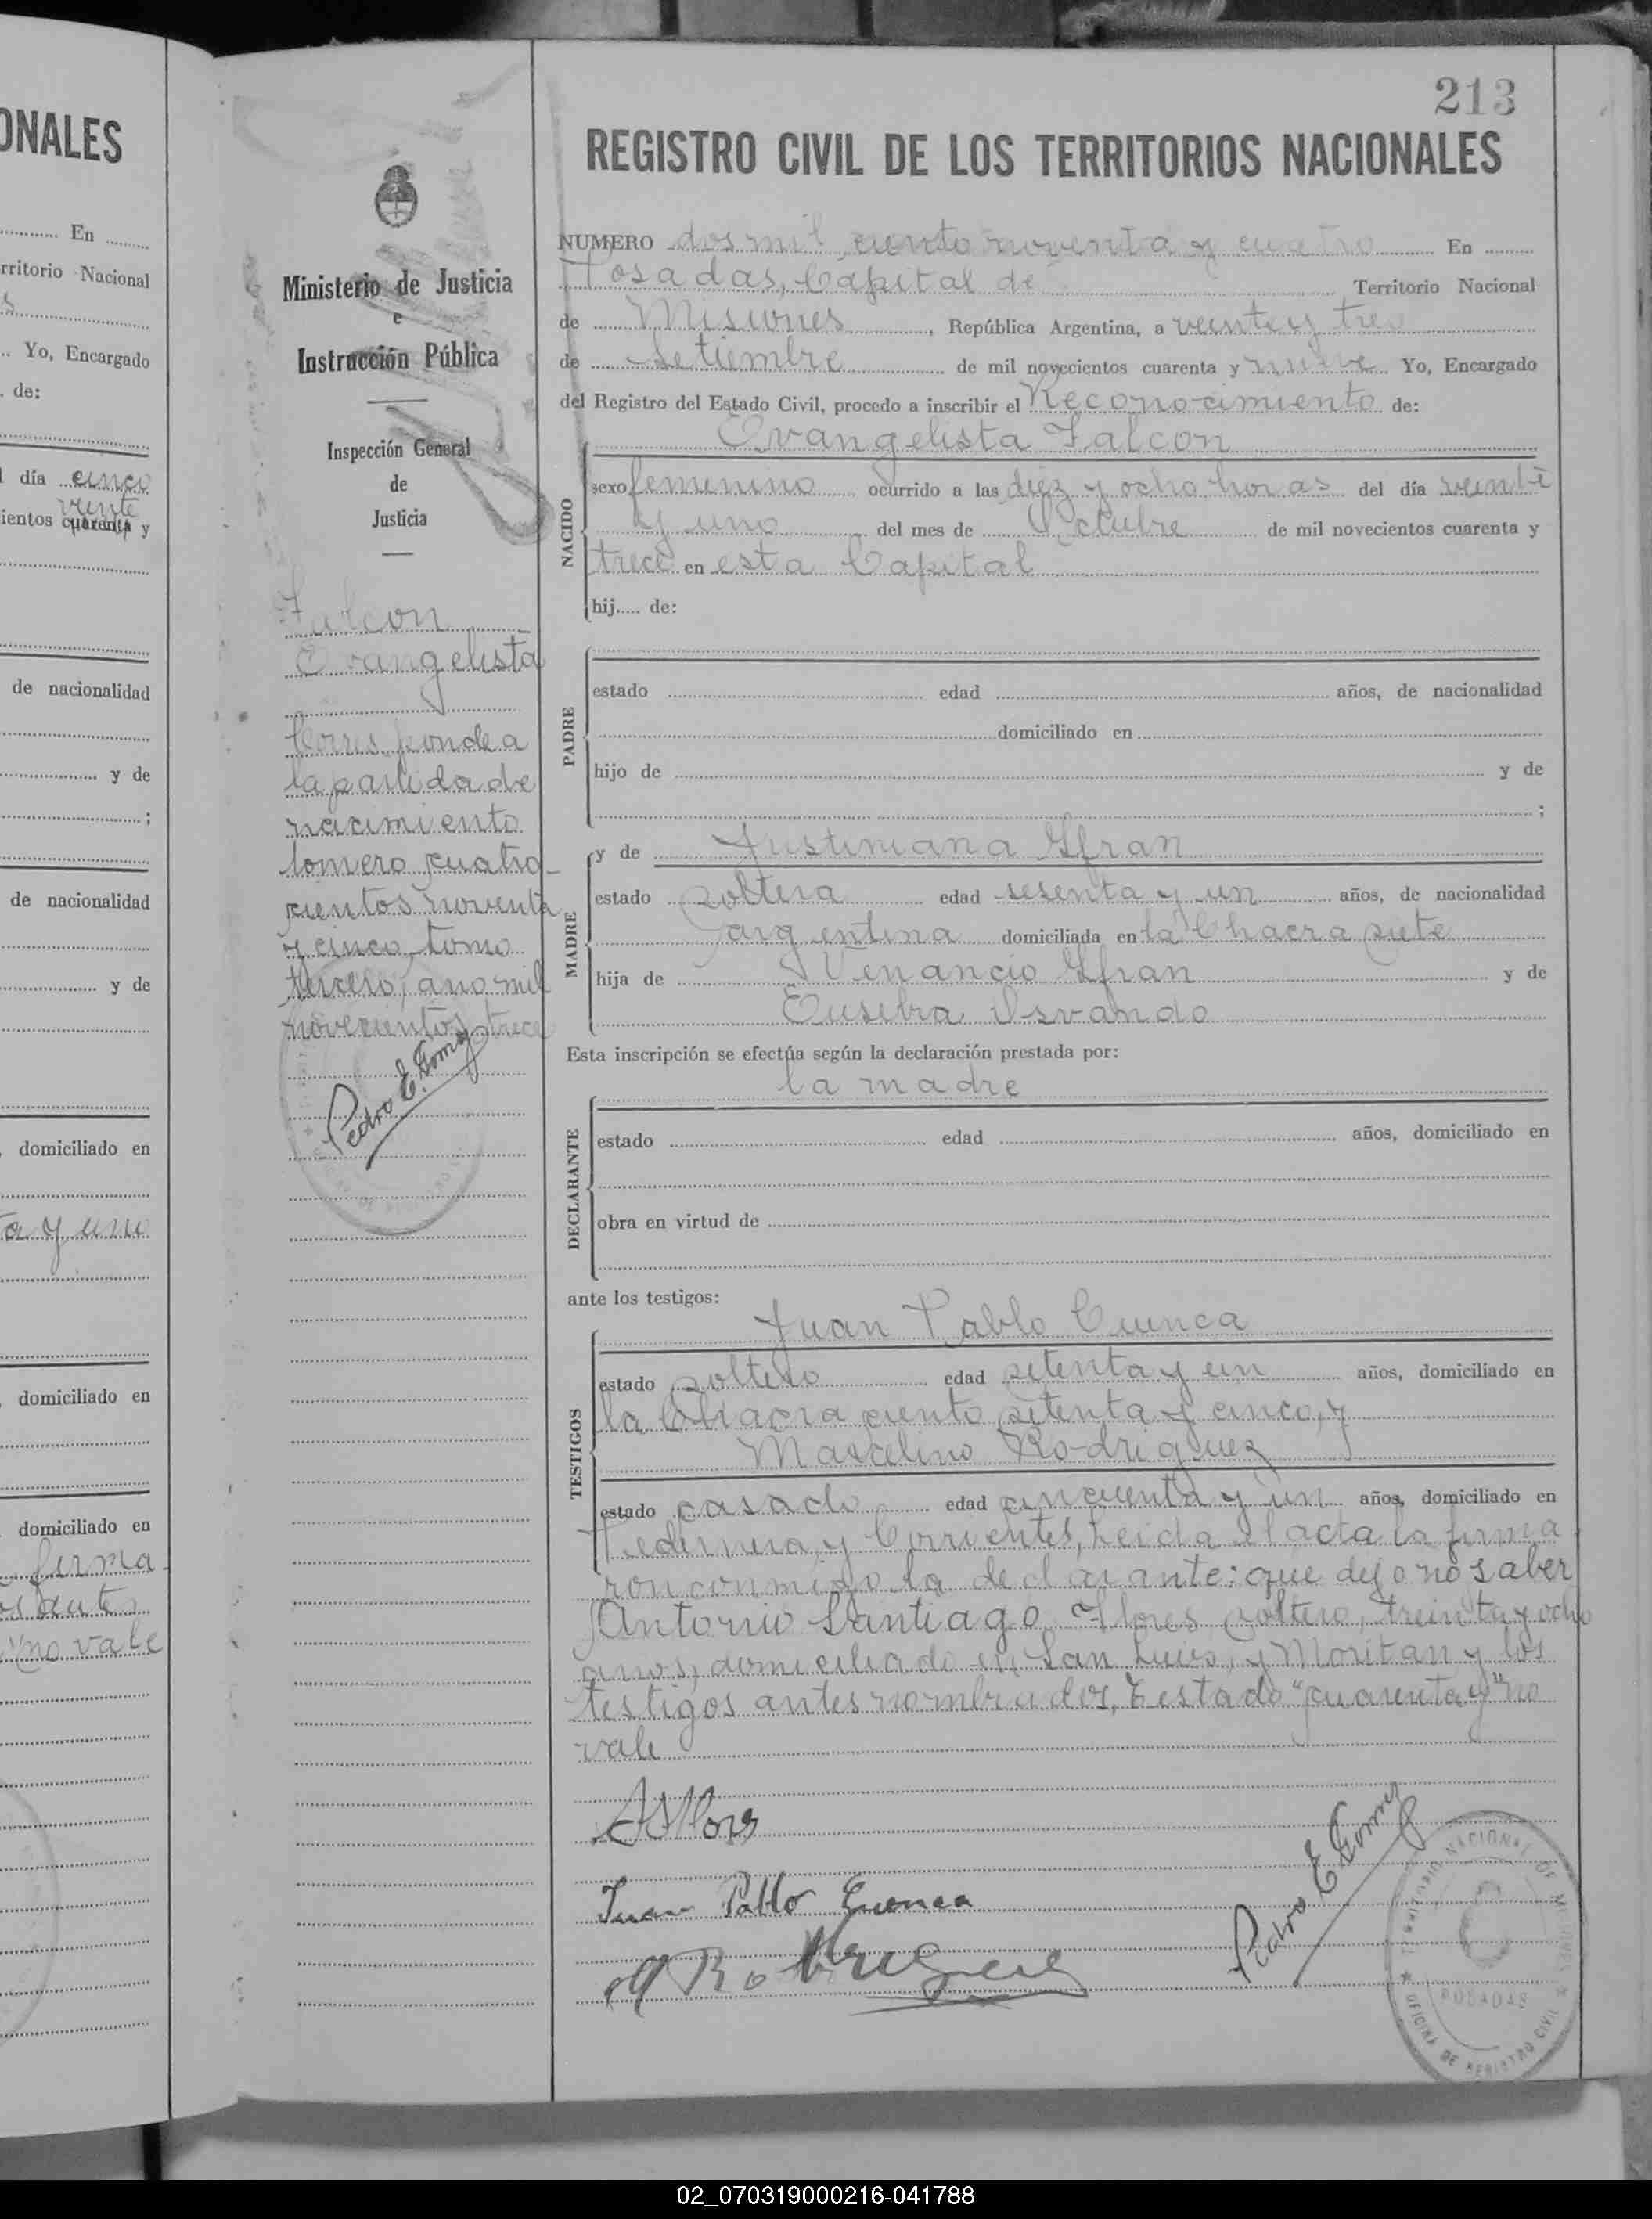 ONALES
En
rritorio Nacional
s
Yo, Encargado
de:
día cinco
veinte
ientos cuarenta y
de nacionalidad
y de
;
de nacionalidad
y de
domiciliado en
ta y uno
domiciliado en
domiciliado en
firma
no vale
Ministerio de Justicia
e
Instrucción Pública
Inspección General
de
Justicia
Falcon
Evangelista
Corresponde a
la partida de
nacimiento
cuatro-
cientos noventa
y cinco, tomo
tercero, ano mil
novecientos trece
Pedro E. Gomez
213
REGISTRO CIVIL DE LOS TERRITORIOS NACIONALES
NUMERO dos mil ciento noventa y cuatro En
Posadas, Capital de Territorio Nacional
de Misiones, República Argentina, a veinte y tres
de Setiembre de mil novecientos cuarenta y nueve Yo, Encargado
del Registro del Estado Civil, procedo a inscribir el Reconocimiento de:
Evangelista Falcon
NACIDO
sexo femenino ocurrido a las diez y ocho horas del día veinte
y uno del mes de Octubre de mil novecientos cuarenta y
trece en esta Capital
hij..... de:
PADRE
estado edad años, de nacionalidad
domiciliado en
hijo de y de
;
MADRE
y de Justiniana Gfran
estado soltera edad sesenta y un años, de nacionalidad
argentina domiciliada en la Chacra siete
hija de Venancio Gfran y de
Eusebia Osvando
Esta inscripción se efectúa según la declaración prestada por:
la madre
DECLARANTE
estado edad años, domiciliado en
obra en virtud de
ante los testigos:
TESTIGOS
Juan Pablo Cuenca
estado soltero edad setenta y un años, domiciliado en
la Chacra ciento setenta y cinco, y
Marcelino Rodriguez
estado casado edad cincuenta y un años, domiciliado en
Pedernera y Corrientes, Leida el acta la firma
ron conmigo la declarante: que dijo no saber
Antonio Santiago Flores soltero, treinta y ocho
anos, domiciliado en San Luis, y Moritan y los
testigos antes nombrados, Testado "cuarenta y" no
vale
ASFlores
Juan Pablo Cuenca
M Rodriguez
Pedro E Gomez
TERRITORIO NACIONAL DE MISIONES
POSADAS
OFICINA DE REGISTRO CIVIL
02_070319000216-041788